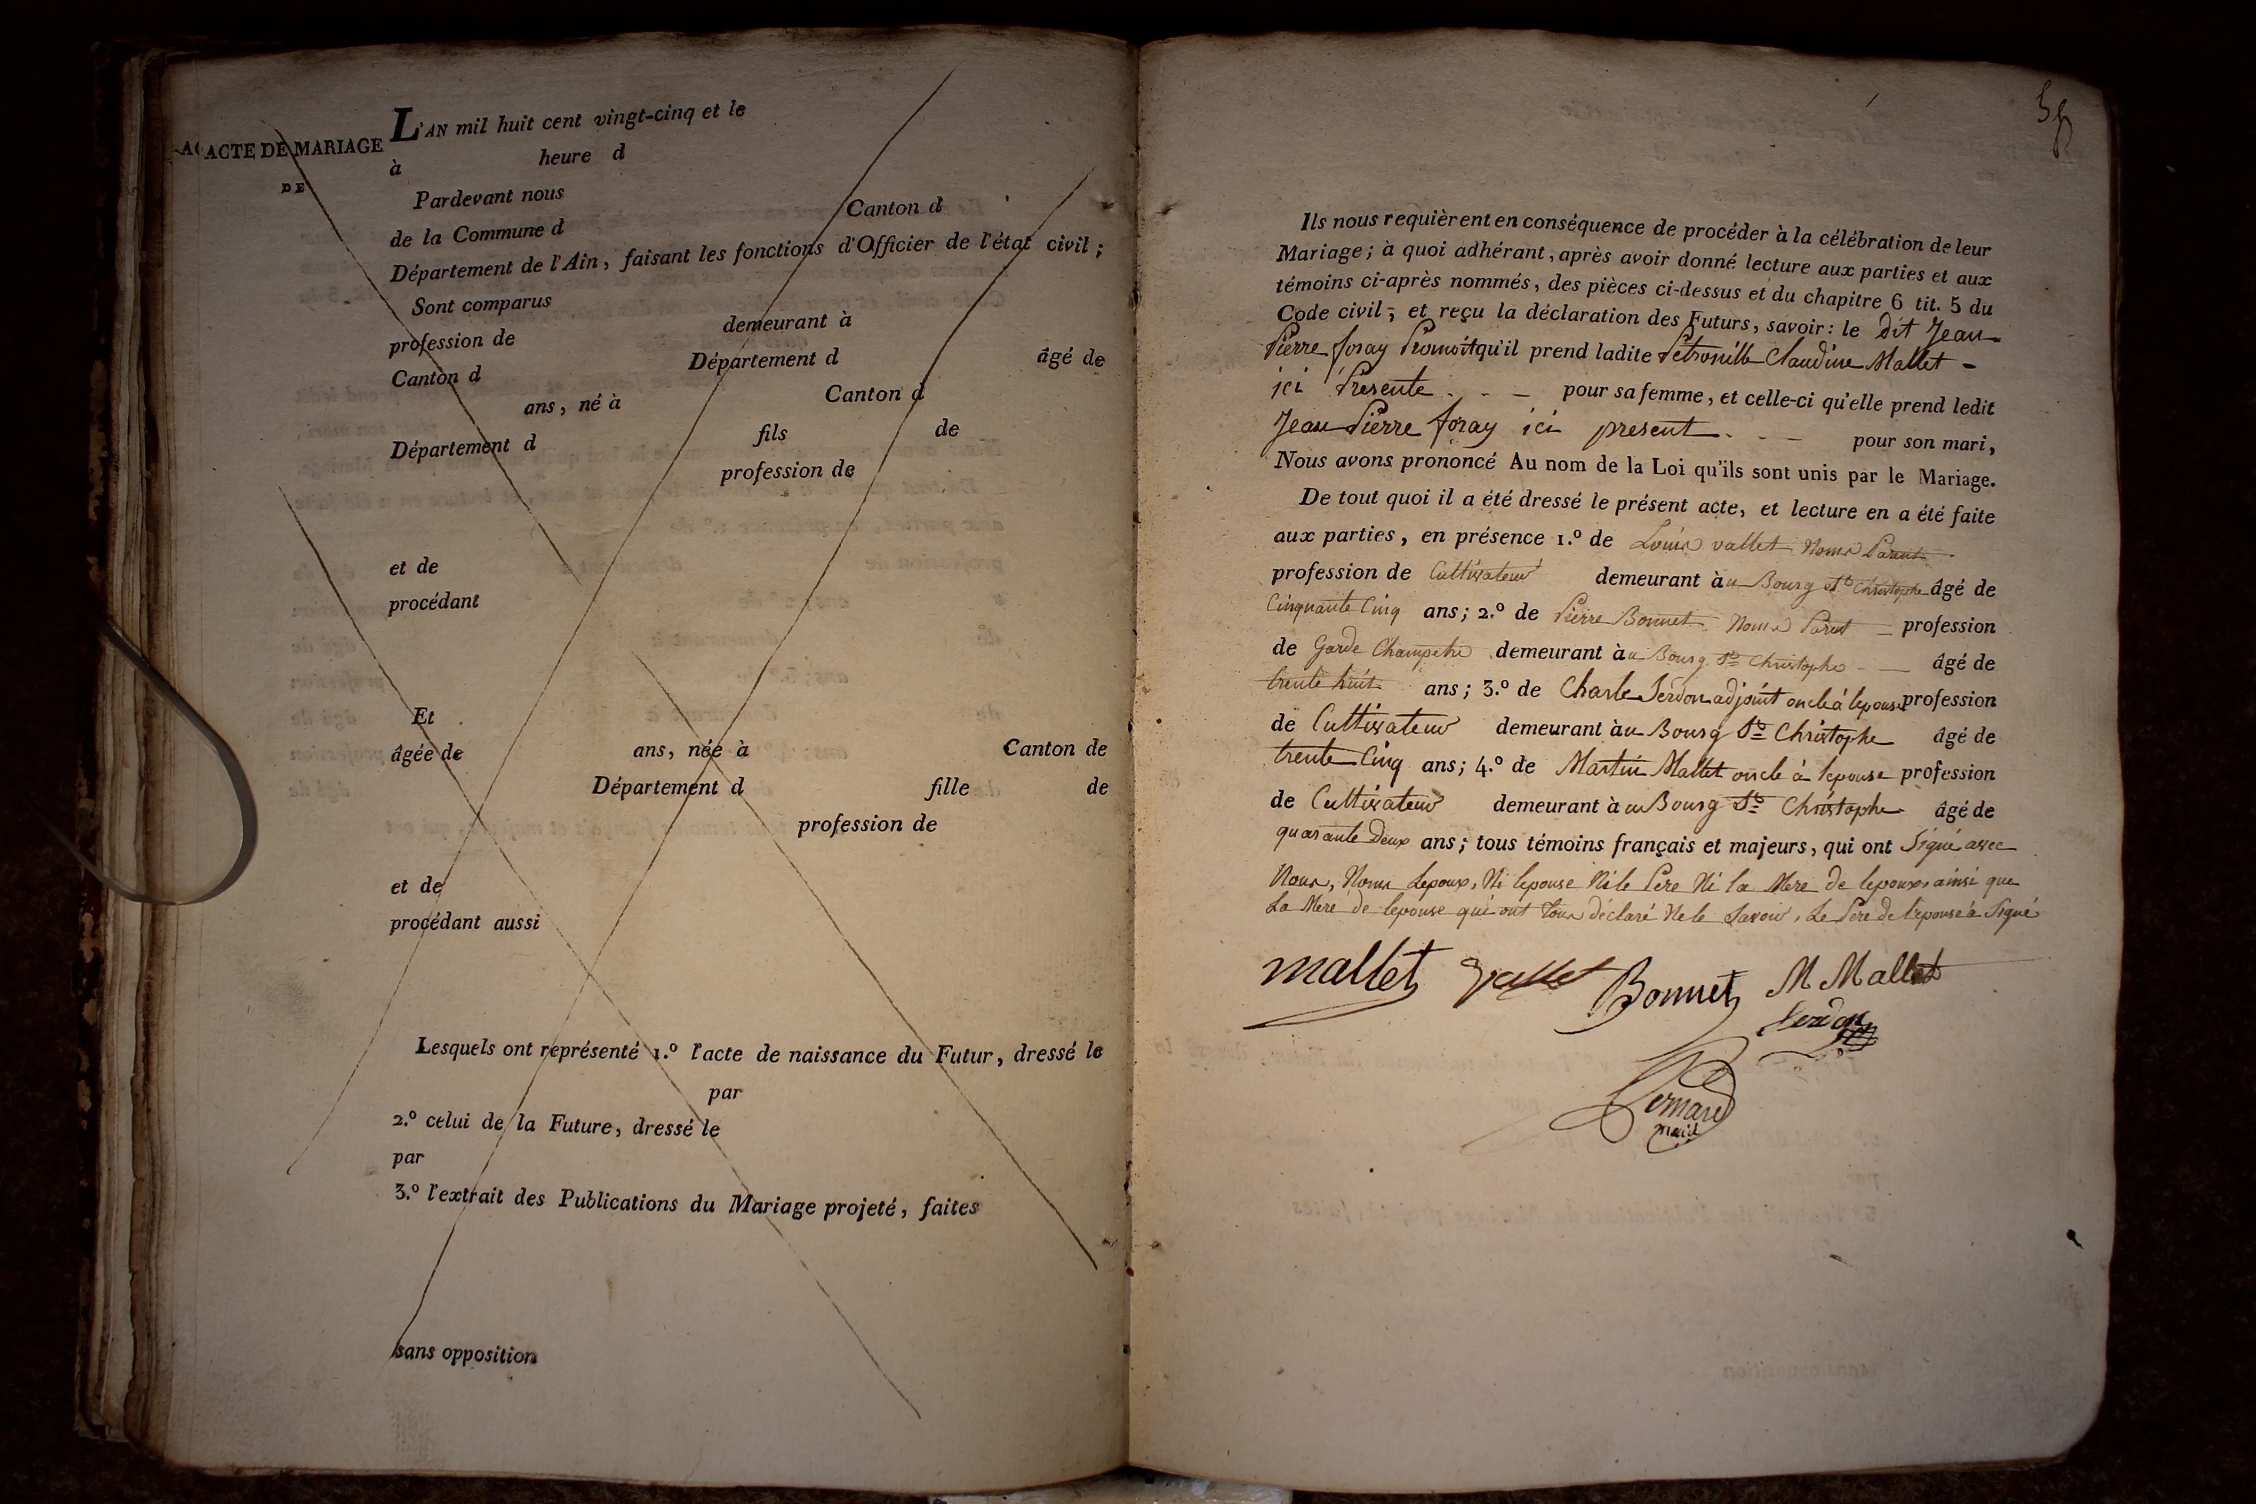 ACTE DE MARIAGE
DE
L'AN mil huit cent vingt-cinq et le
à heure d
Pardevant nous
de la Commune d Canton d
Département de l'Ain, faisant les fonctions d'Officier de l'état civil;
Sont comparus
profession de demeurant à
Canton d Département d âgé de
ans, né à Canton d
Département d fils de
profession de
et de
procédant
Et
âgée de ans, née à Canton de
Département d fille de
profession de
et de
procédant aussi
Lesquels ont représenté 1.º l'acte de naissance du Futur, dressé le
par
2.º celui de la Future, dressé le
par
3.º l'extrait des Publications du Mariage projeté, faites
sans opposition
Ils nous requièrent en conséquence de procéder à la célébration de leur
Mariage; à quoi adhérant, après avoir donné lecture aux parties et aux
témoins ci-après nommés, des pièces ci-dessus et du chapitre 6 tit. 5 du
Code civil; et reçu la déclaration des Futurs, savoir: le dit Jean
Pierre foray Promoit qu'il prend ladite Pétronille Claudine Mallet -
ici Presente - - - pour sa femme, et celle-ci qu'elle prend ledit
Jean Pierre foray ici present - - - pour son mari,
Nous avons prononcé Au nom de la Loi qu'ils sont unis par le Mariage.
De tout quoi il a été dressé le présent acte, et lecture en a été faite
aux parties, en présence 1.º de Louis vallet Nom Parent
profession de Cultivateur demeurant à u Bourg St Christophe âgé de
Cinquante Cinq ans; 2.º de Pierre Bonnet Nom Parent - profession
de Garde Champetre demeurant à u Bourg St Christophe - - âgé de
trente huit ans; 3.º de Charle Jerdon adjoint oncle à lepouse profession
de Cultivateur demeurant à u Bourg St Christophe âgé de
trente Cinq ans; 4.º de Martin Mallet oncle à lepouse profession
de Cultivateur demeurant à u Bourg St Christophe âgé de
quarante Deux ans; tous témoins français et majeurs, qui ont Signé avec
Nous, Nom Lepoux, Ni lepouse Ni le Pere Ni la Mere de lepoux, ainsi que
La Mere de lepouse qui ont tous déclaré Ne le Savoir, Le Pere de l'epouse à Signé
mallet vallet Bonnet M Mallet
Jerdon
Bernard
maire